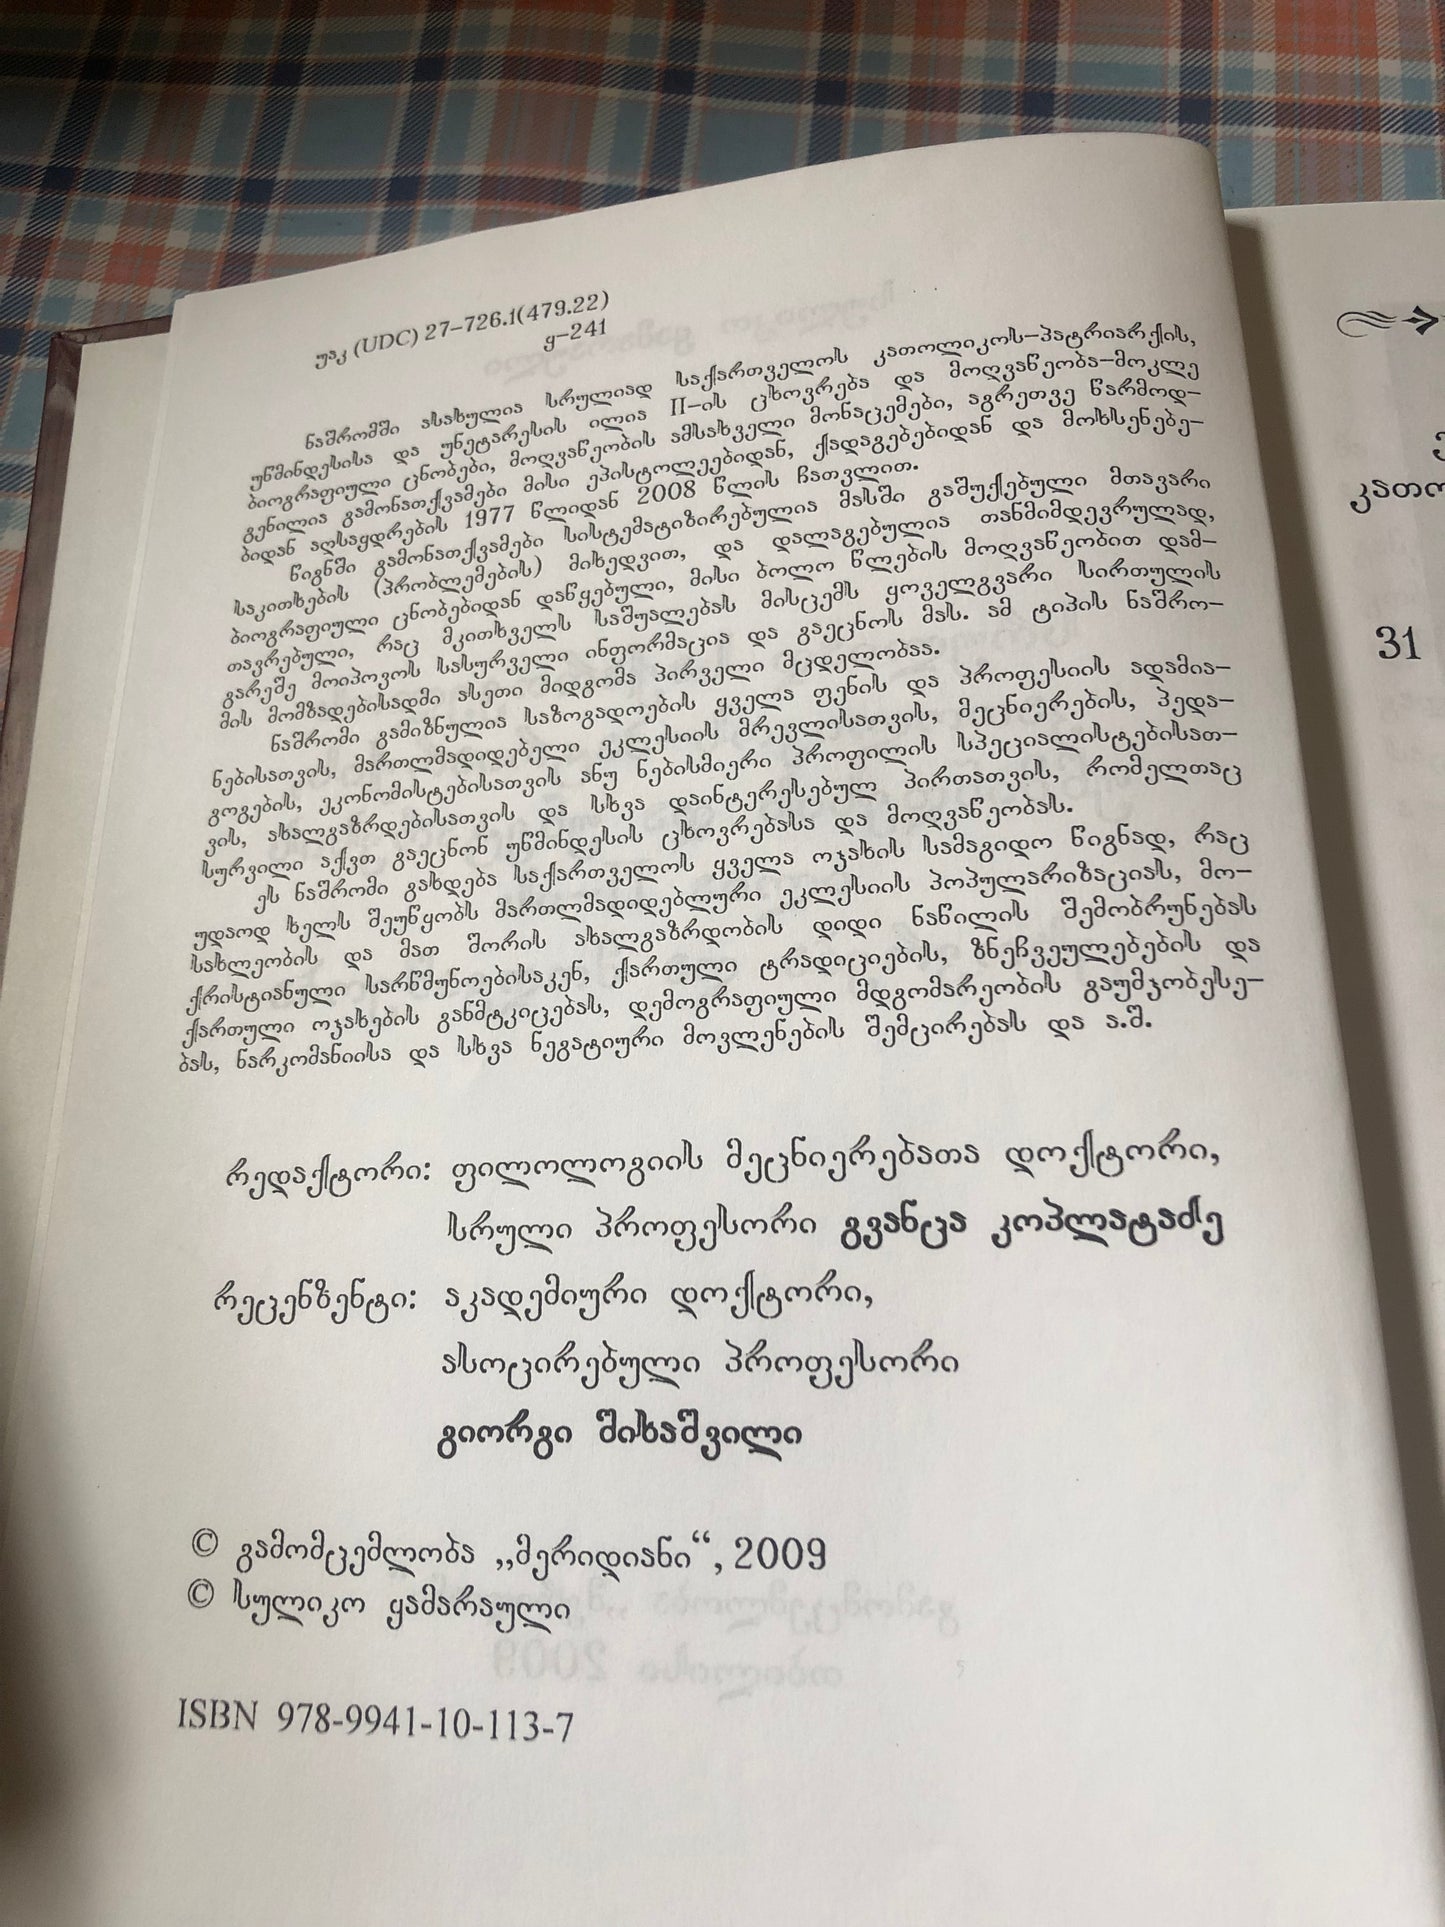 უაკ (UDC) 27–726.1(479.22)
ყ–241
ნაშრომში ასახულია სრულიად საქართველოს კათოლიკოს–პატრიარქის,
უწმინდესისა და უნეტარესის ილია II–ის ცხოვრება და მოღვაწეობა–მოკლე
ბიოგრაფიული ცნობები, მოღვაწეობის ამსახველი მონაცემები, აგრეთვე წარმოდ–
გენილია გამონათქვამები მისი ეპისტოლეებიდან, ქადაგებებიდან და მოხსენებე–
ბიდან აღსაყდრების 1977 წლიდან 2008 წლის ჩათვლით.
წიგნში გამონათქვამები სისტემატიზირებულია მასში გაშუქებული მთავარი
საკითხების (პრობლემების) მიხედვით, და დალაგებულია თანმიმდევრულად,
ბიოგრაფიული ცნობებიდან დაწყებული, მისი ბოლო წლების მოღვაწეობით დამ–
თავრებული, რაც მკითხველს საშუალებას მისცემს ყოველგვარი სირთულის
გარეშე მოიპოვოს სასურველი ინფორმაცია და გაეცნოს მას. ამ ტიპის ნაშრო–
მის მომზადებისადმი ასეთი მიდგომა პირველი მცდელობაა.
ნაშრომი გამიზნულია საზოგადოების ყველა ფენის და პროფესიის ადამია–
ნებისათვის, მართლმადიდებელი ეკლესიის მრევლისათვის, მეცნიერების, პედა–
გოგების, ეკონომისტებისათვის ანუ ნებისმიერი პროფილის სპეციალისტებისათ–
ვის, ახალგაზრდებისათვის და სხვა დაინტერესებულ პირთათვის, რომელთაც
სურვილი აქვთ გაეცნონ უწმინდესის ცხოვრებასა და მოღვაწეობას.
ეს ნაშრომი გახდება საქართველოს ყველა ოჯახის სამაგიდო წიგნად, რაც
უდაოდ ხელს შეუწყობს მართლმადიდებლური ეკლესიის პოპულარიზაციას, მო–
სახლეობის და მათ შორის ახალგაზრდობის დიდი ნაწილის შემობრუნებას
ქრისტიანული სარწმუნოებისაკენ, ქართული ტრადიციების, ზნეჩვეულებების და
ქართული ოჯახების განმტკიცებას, დემოგრაფიული მდგომარეობის გაუმჯობესე–
ბას, ნარკომანიისა და სხვა ნეგატიური მოვლენების შემცირებას და ა.შ.
რედაქტორი: ფილოლოგიის მეცნიერებათა დოქტორი,
სრული პროფესორი გვანცა კოპლატაძე
რეცენზენტი: აკადემიური დოქტორი,
ასოცირებული პროფესორი
გიორგი შიხაშვილი
© გამომცემლობა „მერიდიანი“, 2009
© სულიკო ყამარაული
ISBN 978-9941-10-113-7
31